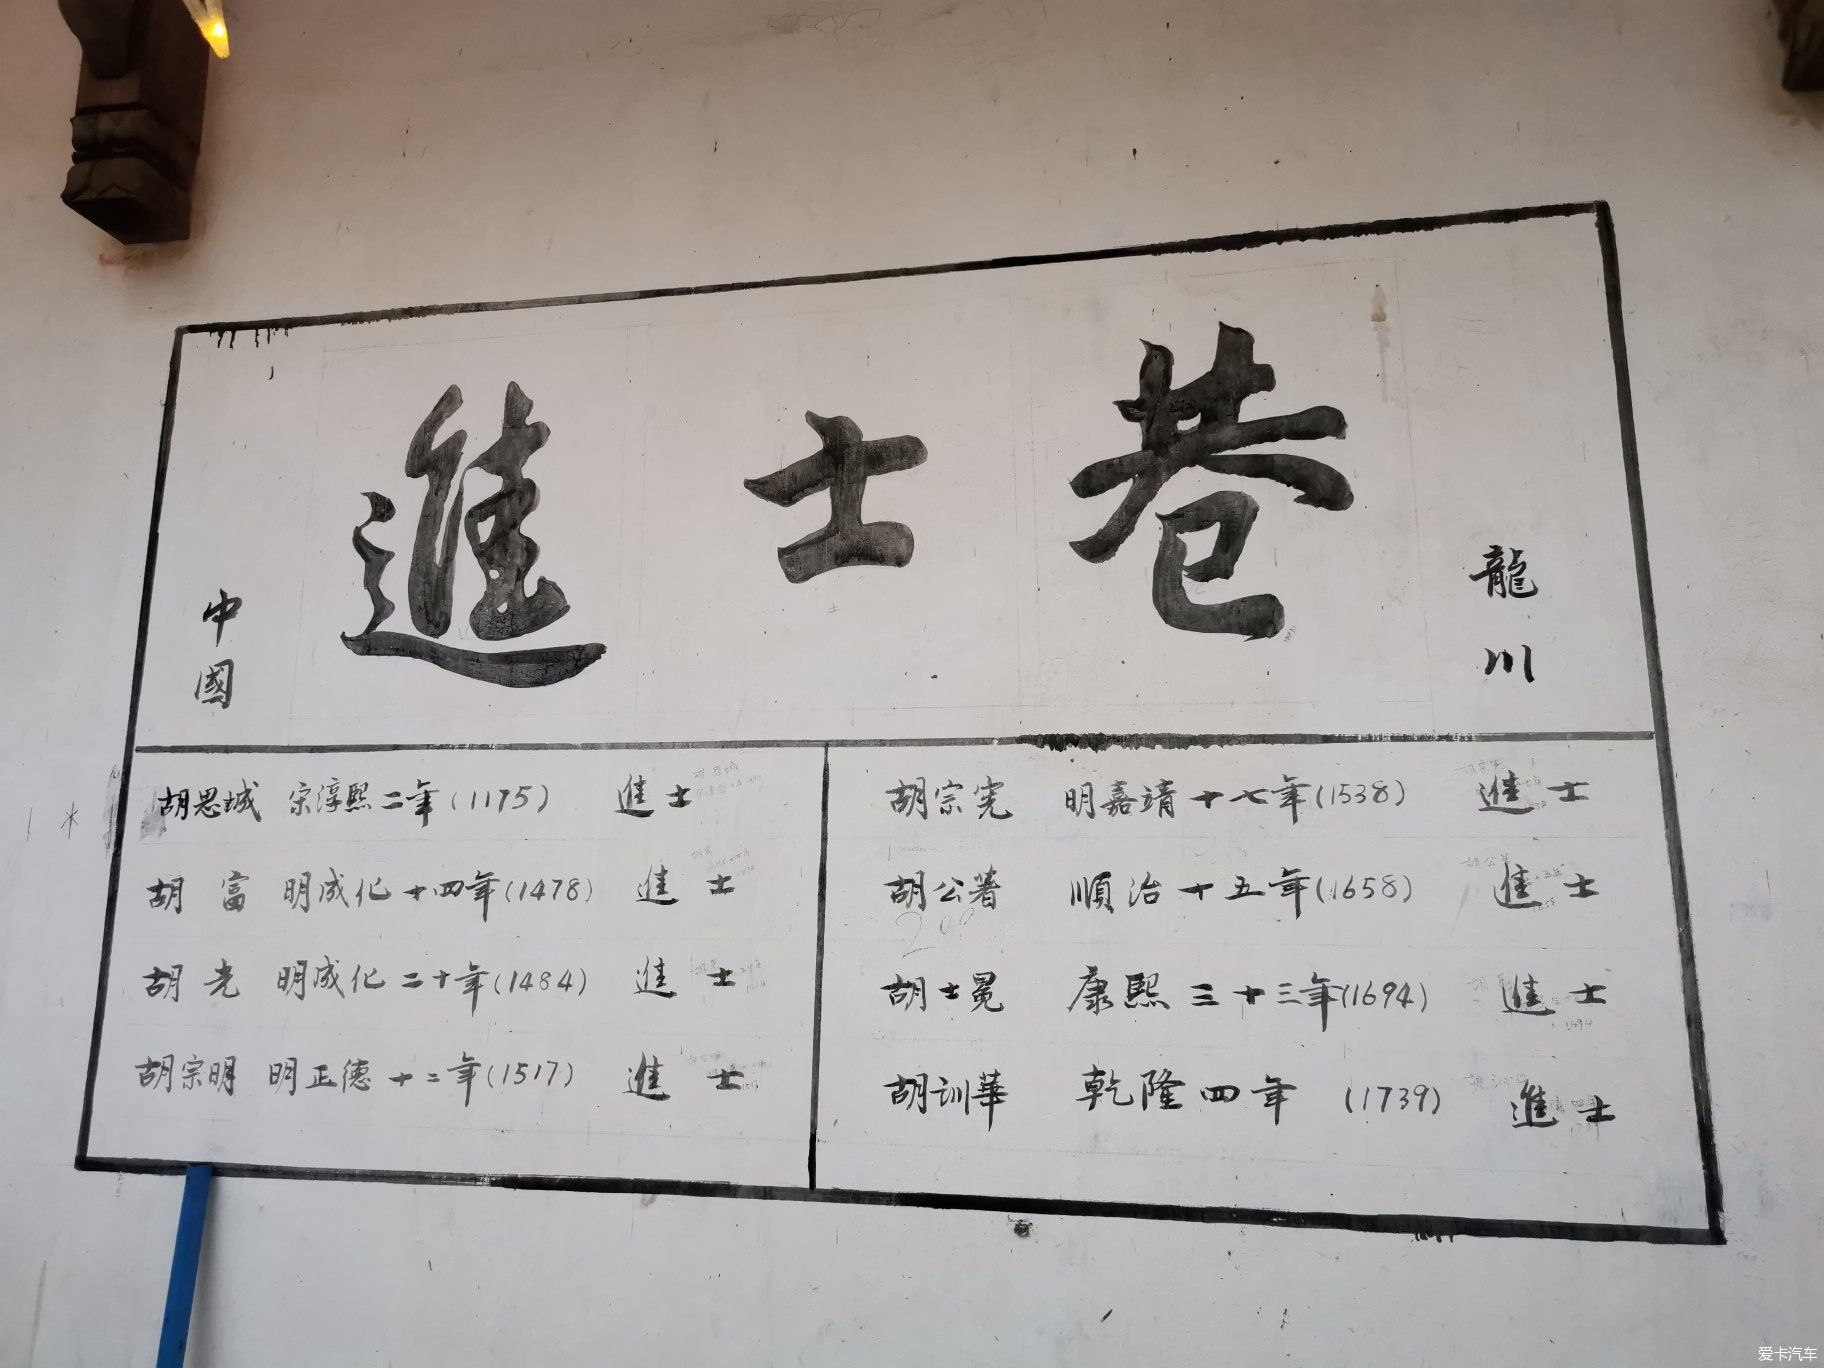 進士巷
中國
龍川
胡思誠 宋淳熙二年(1175) 進士
胡富 明成化十四年(1478) 進士
胡光 明成化二十年(1484) 進士
胡宗明 明正德十二年(1517) 進士
胡宗宪 明嘉靖十七年(1538) 進士
胡公著 順治十五年(1658) 進士
胡士冕 康熙三十三年(1694) 進士
胡训華 乾隆四年 (1739) 進士
爱卡汽车